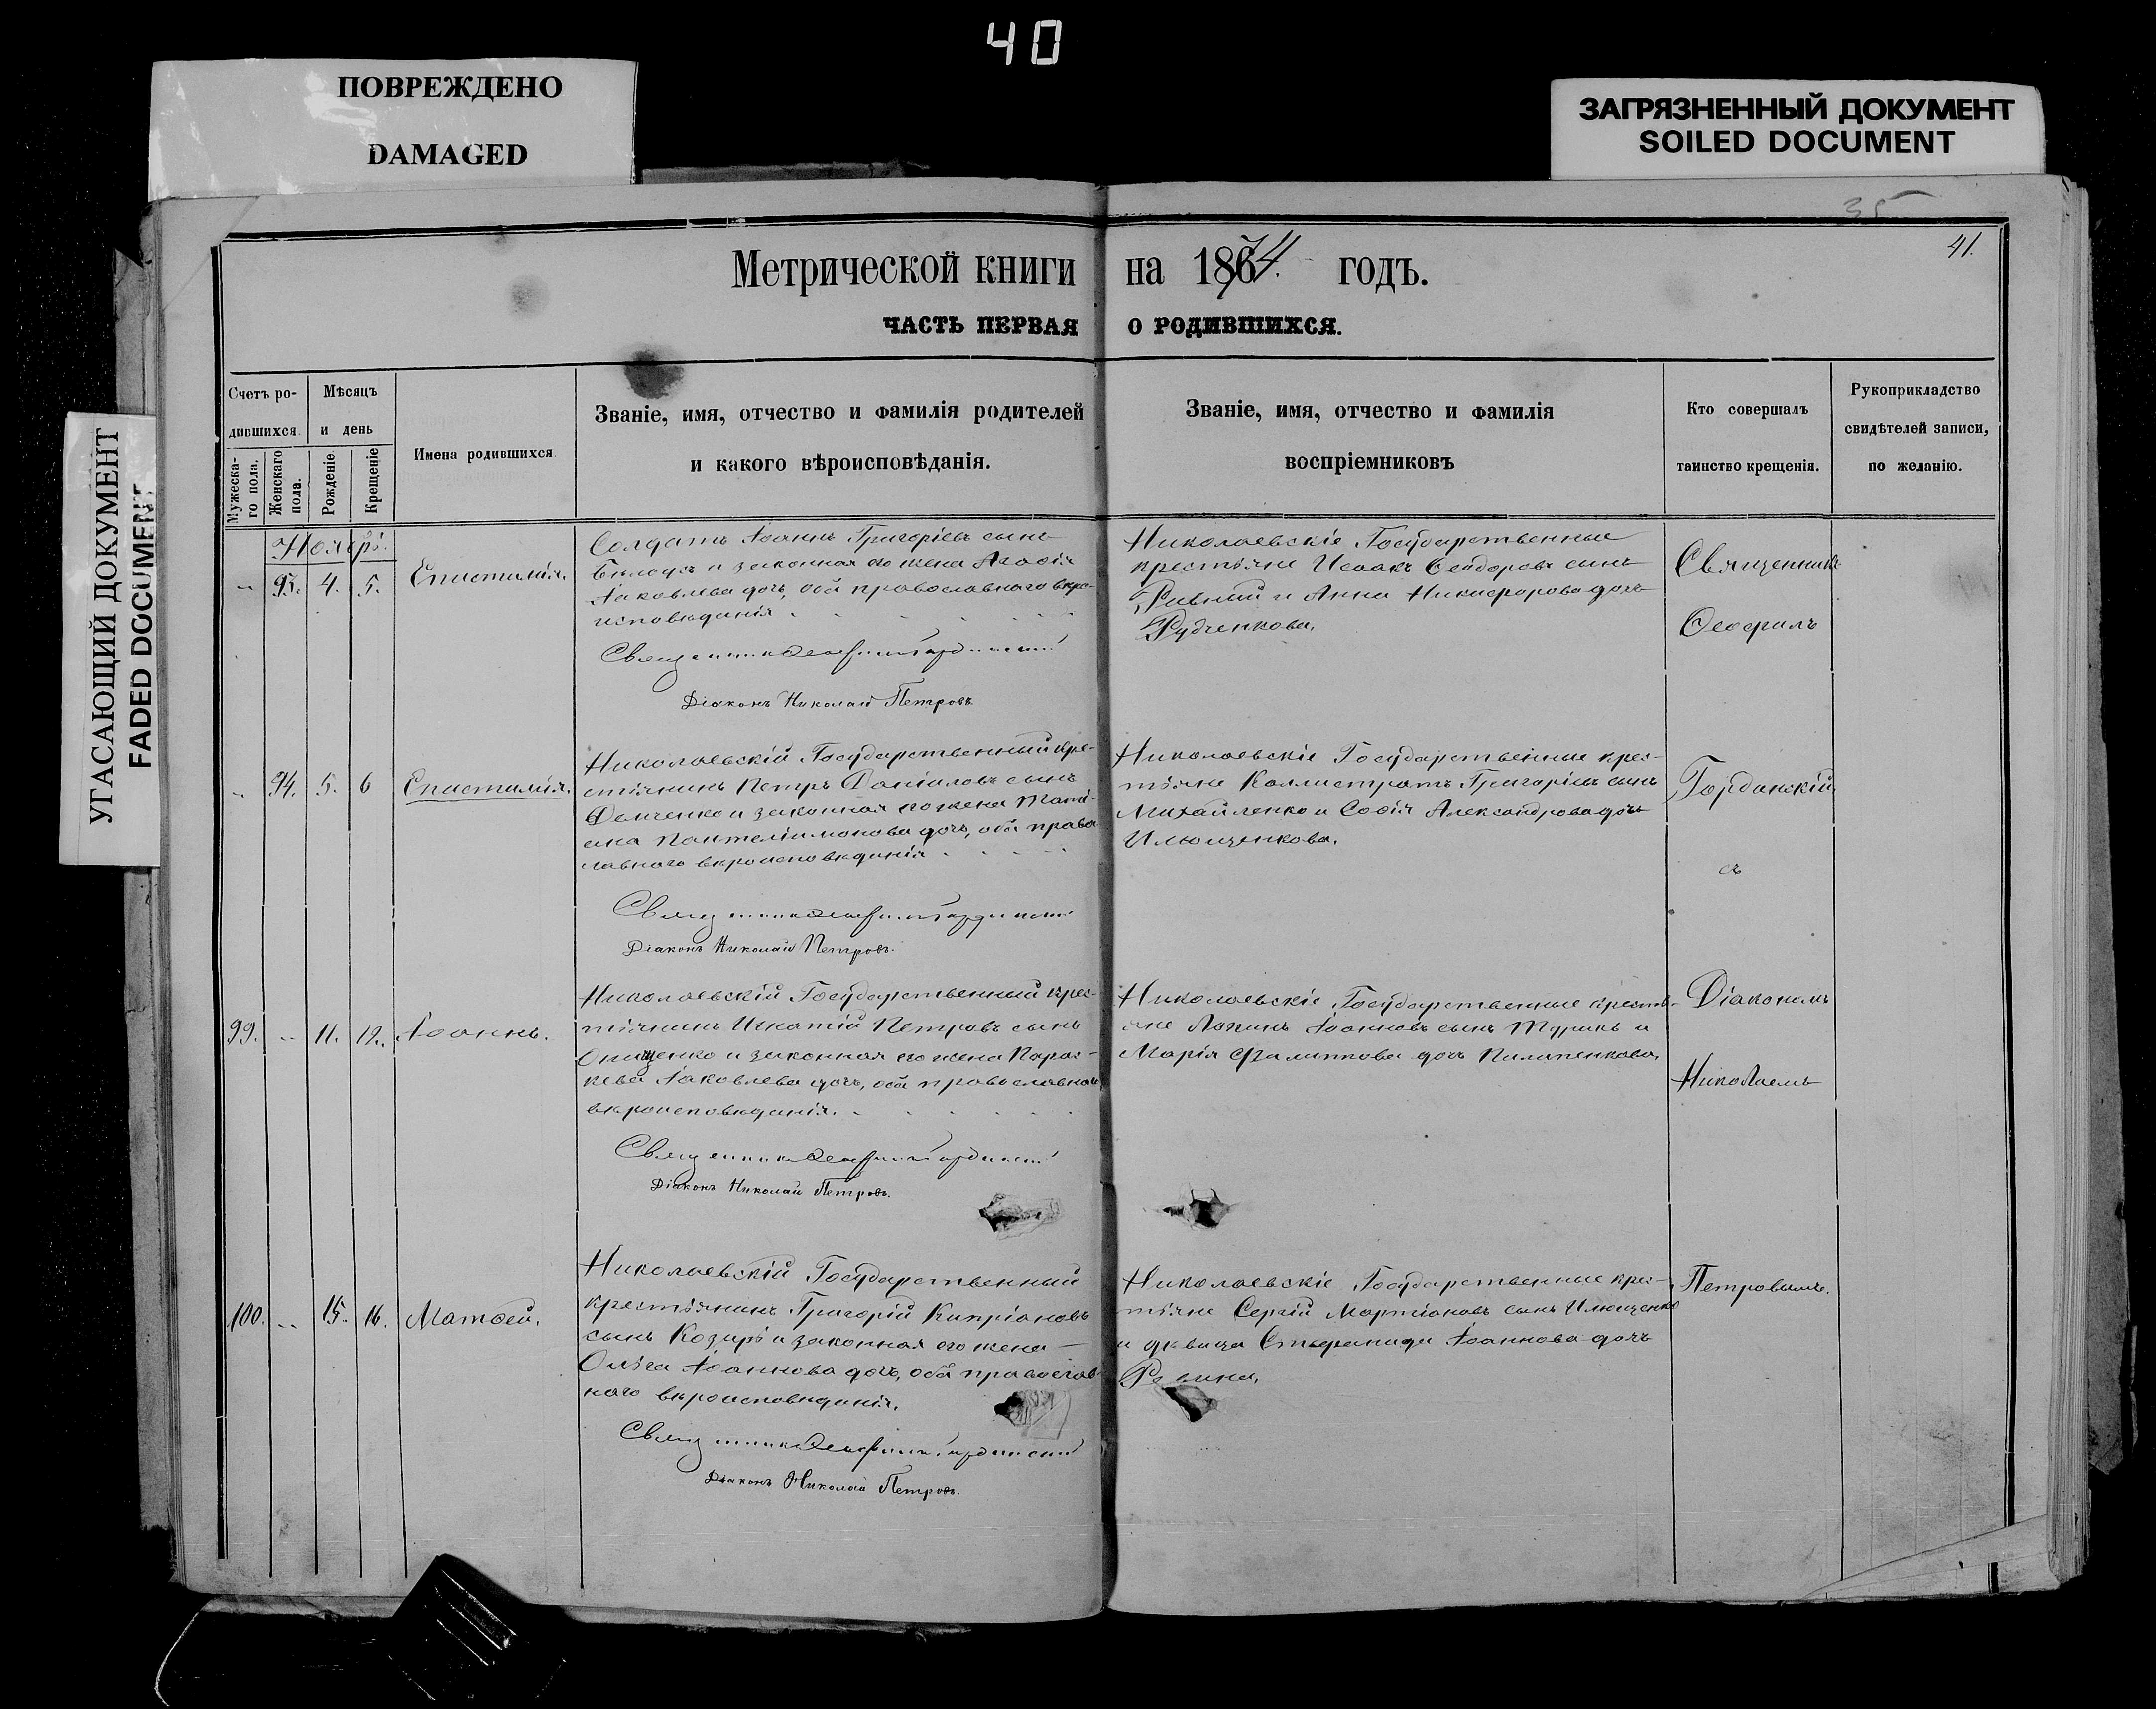 40
ПОВРЕЖДЕНО
DAMAGED
ЗАГРЯЗНЕННЫЙ ДОКУМЕНТ
SOILED DOCUMENT
УГАСАЮЩИЙ ДОКУМЕНТ
FADED DOCUMENT
35
41.
Метрической книги на 1874. годъ.
ЧАСТЬ ПЕРВАЯ О РОДИВШИХСЯ.
Счетъ ро-
дившихся.
Мужеска-
го пола.
Женскаго
пола.
Мѣсяцъ
и день
Рожденіе.
Крещеніе
Имена родившихся.
Званіе, имя, отчество и фамилія родителей
и какого вѣроисповѣданія.
Званіе, имя, отчество и фамилія
воспріемниковъ
Кто совершалъ
таинство крещенія.
Рукоприкладство
свидѣтелей записи,
по желанію.
Ноябрь.
93. 4. 5. Епистимія.
Солдатъ Іоаннъ Григоріевъ сынъ
Бѣлоусъ и законная его жена Агаѳія
Іаковлева дочь, оба православнаго вѣро-
исповѣданія
Священникъ Ѳеофилъ Горданскій
Діаконъ Николай Петровъ.
Николаевскіе Государственные
крестьяне Исаакъ Ѳеодоровъ сынъ
Ривный и Анна Никифорова дочь
Рудченкова.
Священникъ
Ѳеофилъ
94. 5. 6 Епистимія.
Николаевскій Государственный кре-
стьянинъ Петръ Даніиловъ сынъ
Демченко и законная его жена Тати-
ана Пантелеимонова дочь, оба право
славнаго вѣроисповѣданія
Священникъ Ѳеофилъ Горданскій
Діаконъ Николай Петровъ.
Николаевскіе Государственные крес-
тьяне Каллистратъ Григоріевъ сынъ
Михайленко и Софія Александрова дочь
Ильющенкова.
Горданскій
съ
99. 11. 12. Іоаннъ.
Николаевскій Государственный крес-
тьянинъ Игнатій Петровъ сынъ
Онищенко и законная его жена Парас-
кева Іаковлева дочь, оба православнаго
вѣроисповѣданія.
Священникъ Ѳеофилъ Горданскій
Діаконъ Николай Петровъ.
Николаевскіе Государственные кресть-
яне Іоанновъ сынъ Турикъ и
Марія Филиппова дочь Пилипенкова.
Діакономъ
Николаемъ
100. 15. 16. Матѳей.
Николаевскій Государственный
крестьянинъ Григорій Кипріановъ
сынъ Козырь и законная его жена
Ольга Іоаннова дочь, оба православ-
наго вѣроисповѣданія.
Священникъ Ѳеофилъ Горданскій
Діаконъ Николай Петровъ.
Николаевскіе Государственные крес-
тьяне Сергій Мартіановъ сынъ Ильющенко
и дѣвица Стефанида Іоаннова дочь
Петровымъ.